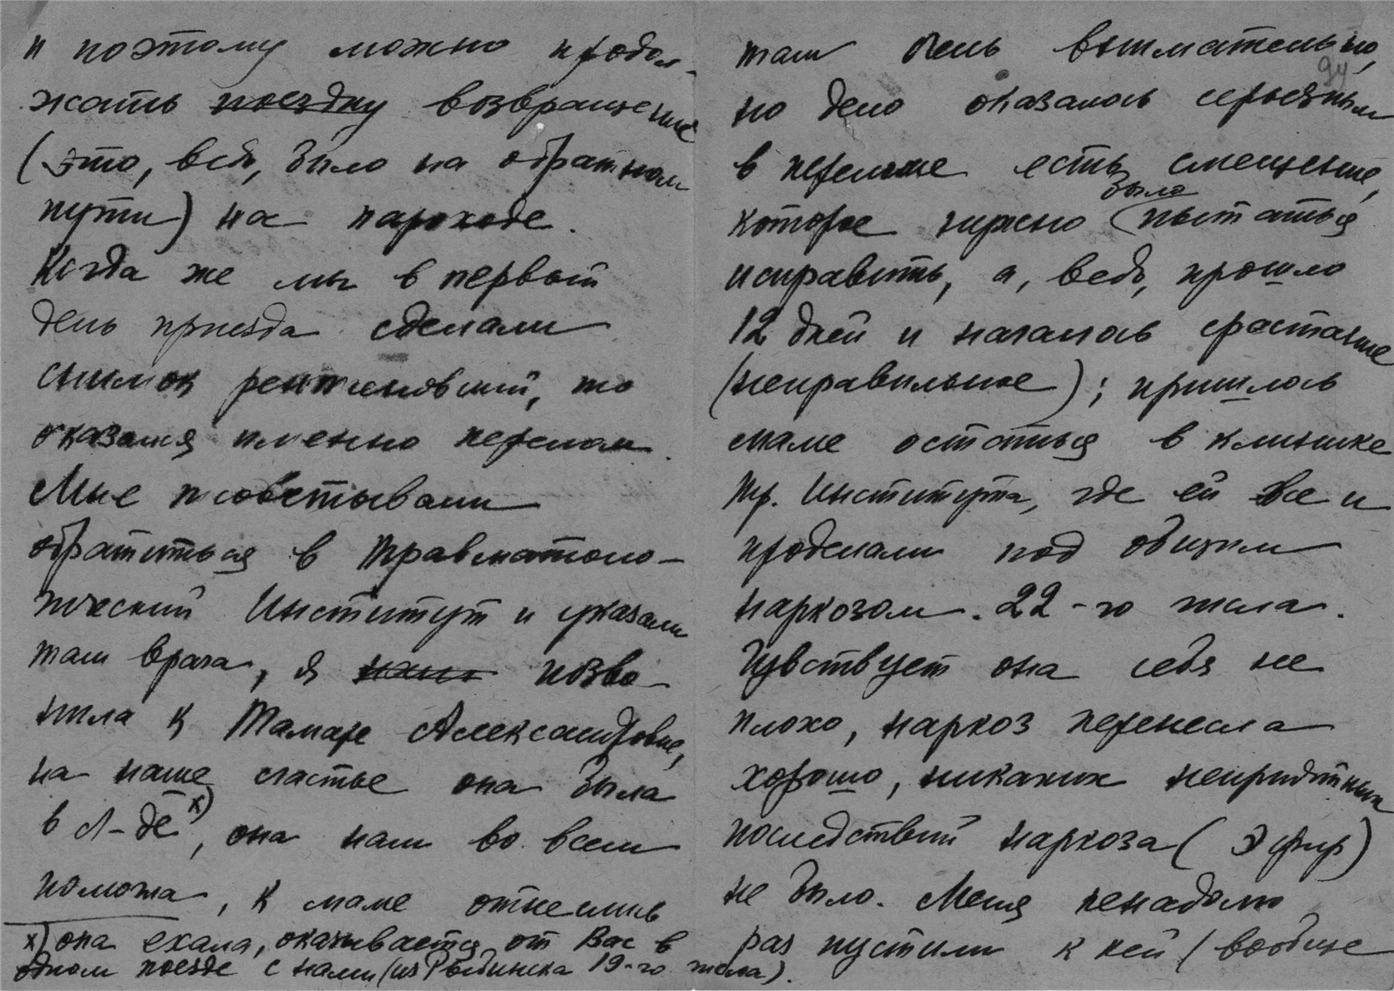 и поэтому можно продол-
жать поездку возвращение
(это, ведь, было на обратном
пути) на пароходе.
Когда же мы в первый
день приезда сделали
снимок рентгеновский, то
оказался именно перелом.
Мне посоветывали
обратиться в Травматоло-
гический Институт и указали
там врача, я позво-
нила к Тамаре Александровне,
на наше счастье она была
в Л-де х), она нам во всем
помогла, к маме отнеслись
х) она ехала, оказывается, от Вас в
одном поезде с нами (из Рыбинска 19-го июля).
94
там очень внимательно,
но дело оказалось серьезным
в переломе есть смещение,
которое нужно было пытаться
исправить, а, ведь, прошло
12 дней и началось срастание
(неправильное); пришлось
маме остаться в клинике
Тр. Института, где ей все и
проделали под общим
наркозом. 22-го июля.
Чувствует она себя не
плохо, наркоз перенесла
хорошо, никаких неприятных
последствий наркоза (эфир)
не было. Меня ненадолго
раз пустили к ней (вообще